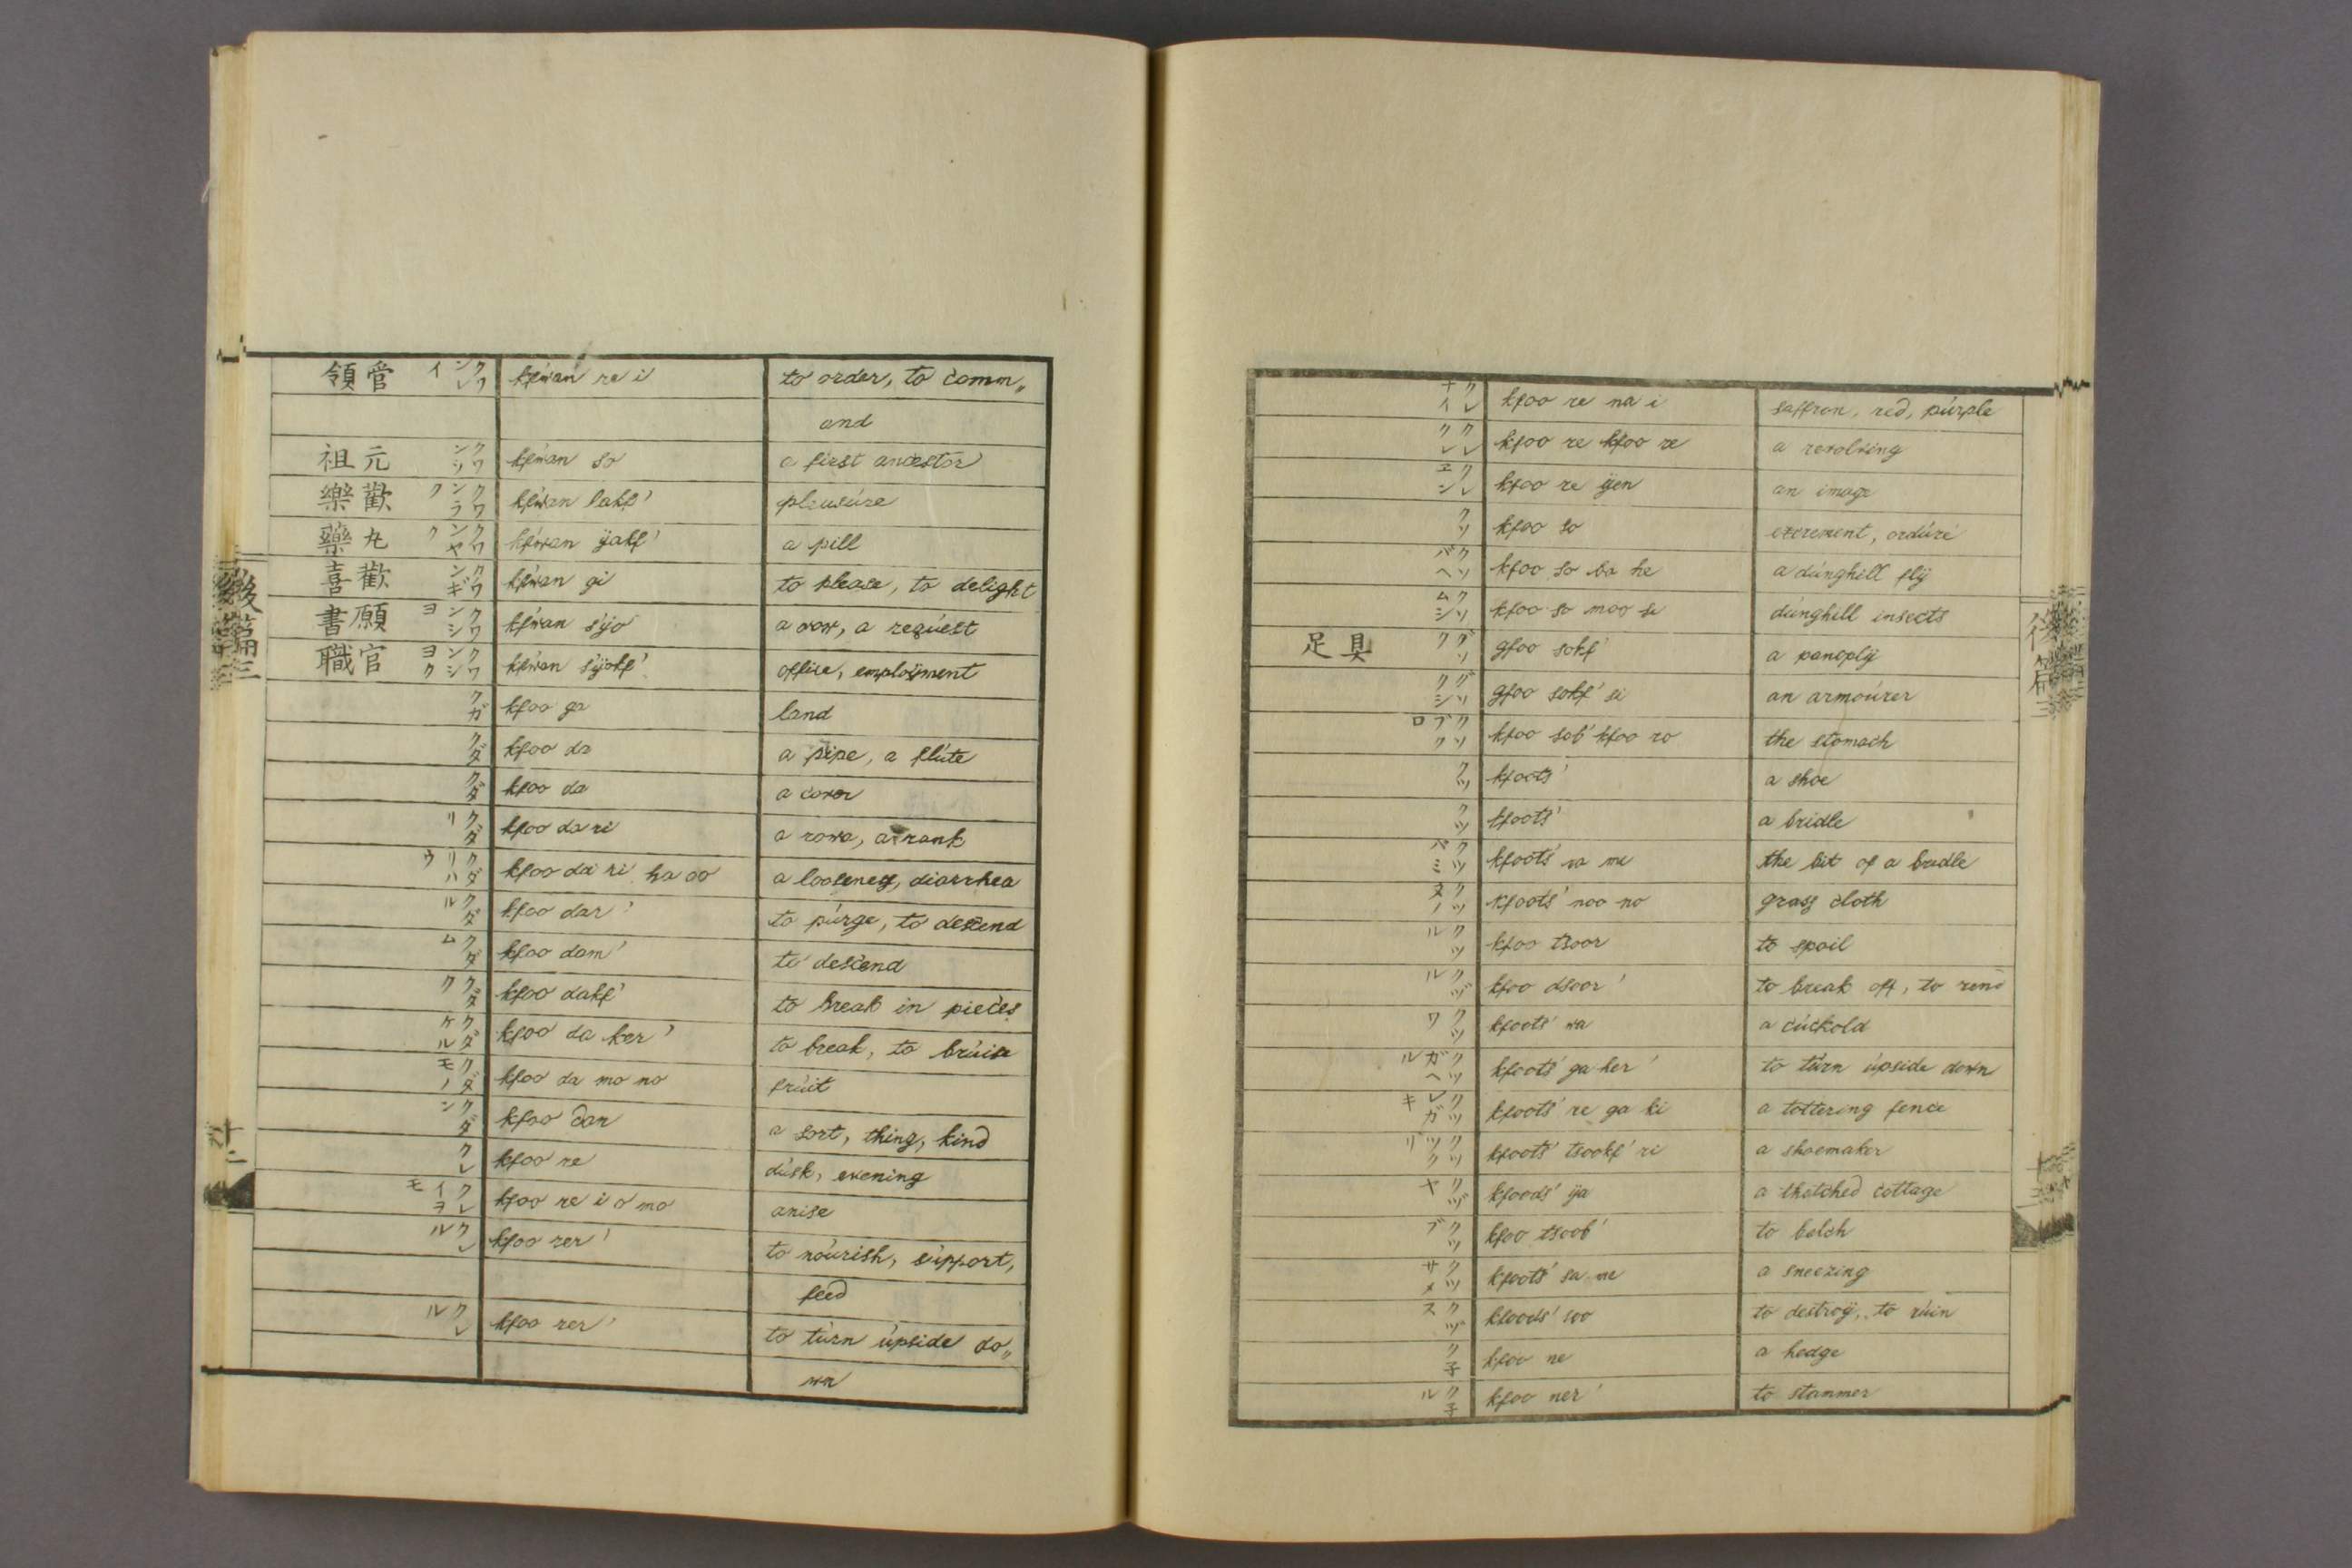 領管 クワンレイ kfwan re i to order, to comm„
and
祖元 クワンソ kfwan so a first ancestor
樂歡 クワンラク kfwan lakf' pleusúre
藥丸 クワンヤク kfwan ÿakf' a pill
喜歡 クワンギ kfwan gi to please, to delight
書願 クワンシヨ kfwan s'ÿo a vow, a reqúest
職官 クワンシヨク kfwan s'ÿokf' office, emploÿment
クガ kfoo ga land
クダ kfoo da a pipe, a flúte
クダ kfoo da a cover
クダリ kfoo da ri a rowa, a rank
クダリハウ kfoo da ri ha oo a looseness, diarrhea
クダル kfoo dar' to púrge, to descend
クダム kfoo dam' to descend
クダク kfoo dakf' to break in pieces
クダケル kfoo da ker' to break, to brúise
クダモノ kfoo da mo no frúit
クダン kfoo dan a sort, thing, kind
クレ kfoo re dúsk, evening
クレイヲモ kfoo re i o mo anise
クレル kfoo rer' to noúrish, súpport,
feed
クレル kfoo rer' to túrn úpside do„
wn
後篇三
十二
クレナイ kfoo re na i saffron, red, púrple
クレクレ kfoo re kfoo re a revolving
クレエン kfoo re ÿen an image
クソ kfoo so excrement, ordúre
クソバヘ kfoo so ba he a dúnghill flÿ
クソムシ kfoo so moo si dúnghill insects
足具 グソク gfoo sokf' a panoplÿ
グソクシ gfoo sokf' si an armoúrer
クソブクロ kfoo sob' kfoo ro the stomach
クツ kfoots' a shoe
クツ kfoots' a bridle
クツバミ kfoots' va me the bit of a bridle
クツヌノ kfoots' noo no grass cloth
クツル kfoo tsoor to spoil
クヅル kfoo dsoor' to break off, to rend
クツワ kfoots' wa a cúckold
クツガヘル kfoots' ga her' to túrn úpside down
クツレガキ kfoots' re ga ki a tottering fence
クツツクリ kfoots' tsookf' ri a shoemaker
クヅヤ kfoods' ÿa a thatched cottage
クツブ kfoo tsoob' to belch
クツサメ kfoots' sa me a sneezing
クヅス kfoods' soo to destroÿ, to rúin
ク子 kfoo ne a hedge
ク子ル kfoo ner' to stammer
後篇